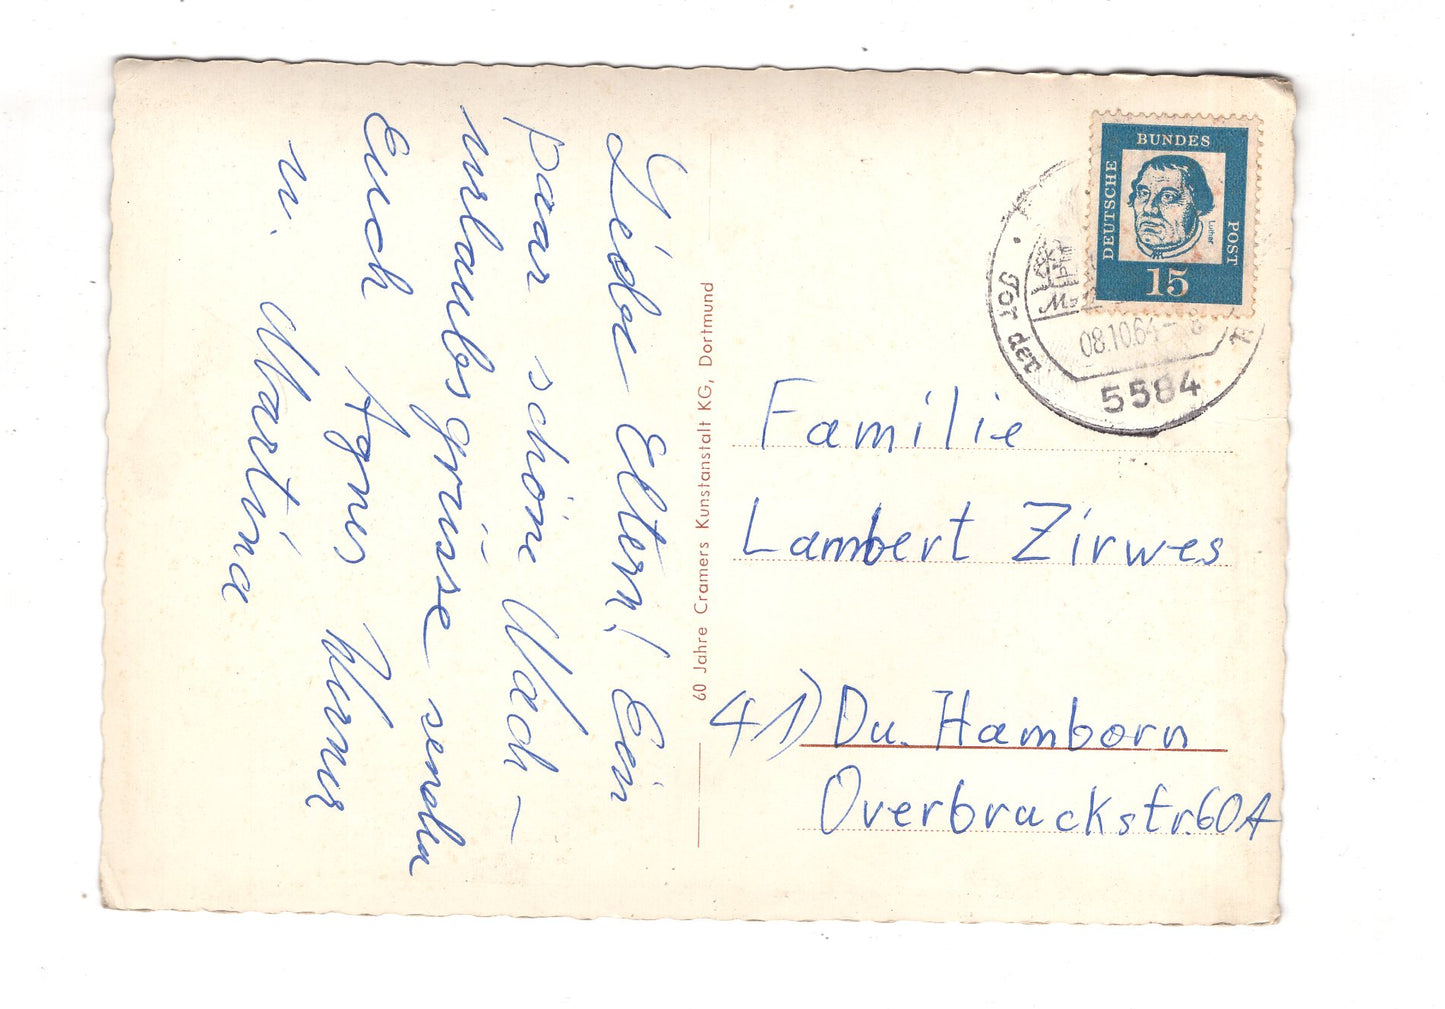 Liebe Eltern! Ein
paar schöne Nach-
urlaubsgrüsse senden
Euch Agnes Werner
u. Martina
60 Jahre Cramers Kunstanstalt KG, Dortmund
DEUTSCHE
BUNDES
POST
Luther
15
Tor der
08.10.64
5584
Familie
Lambert Zirwes
41) Du. Hamborn
Overbruckstr. 60A